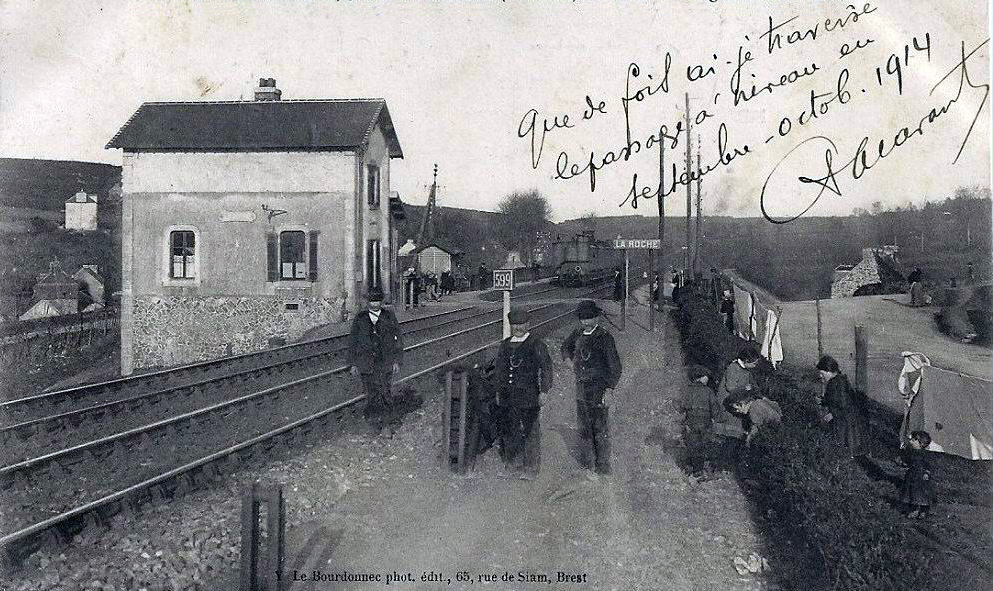 Que de fois ai-je traversé
le passage à niveau en
septembre-octob. 1914
LA ROCHE
599
Y Le Bourdonnec phot. édit., 65, rue de Siam, Brest